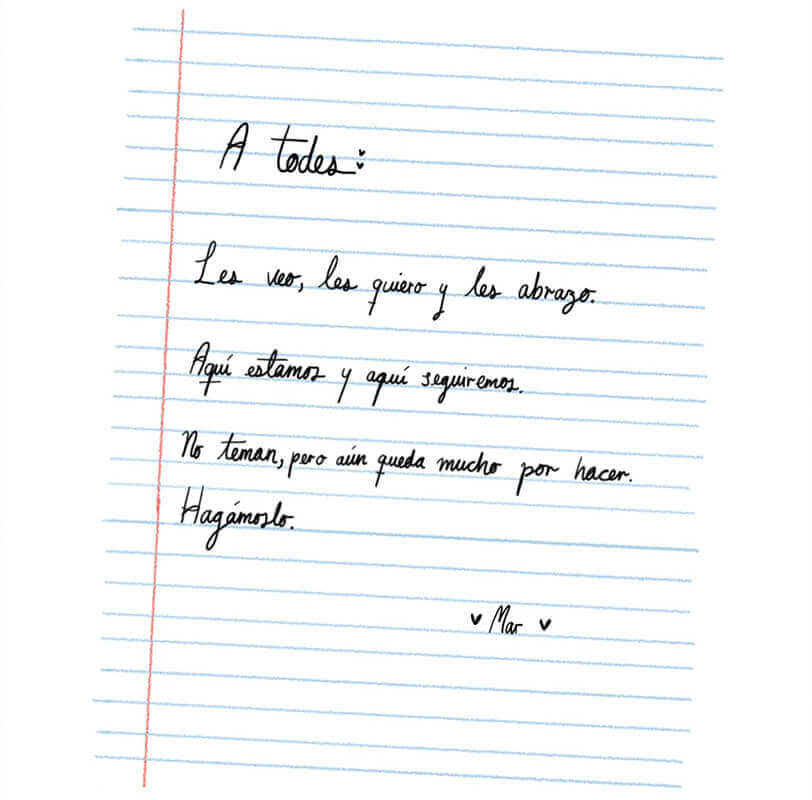 A todes:
Les veo, les quiero y les abrazo.
Aquí estamos y aquí seguiremos.
No teman, pero aún queda mucho por hacer.
Hagámoslo.
♥ Mar ♥